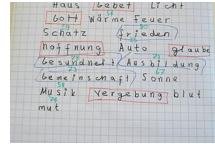 Haus Gebet Licht
Gott Wärme feuer
Schatz frieden
hoffnung Auto glaube
Gesundheit Ausbildung
Gemeinschaft Sonne
Musik vergebung blut
mut